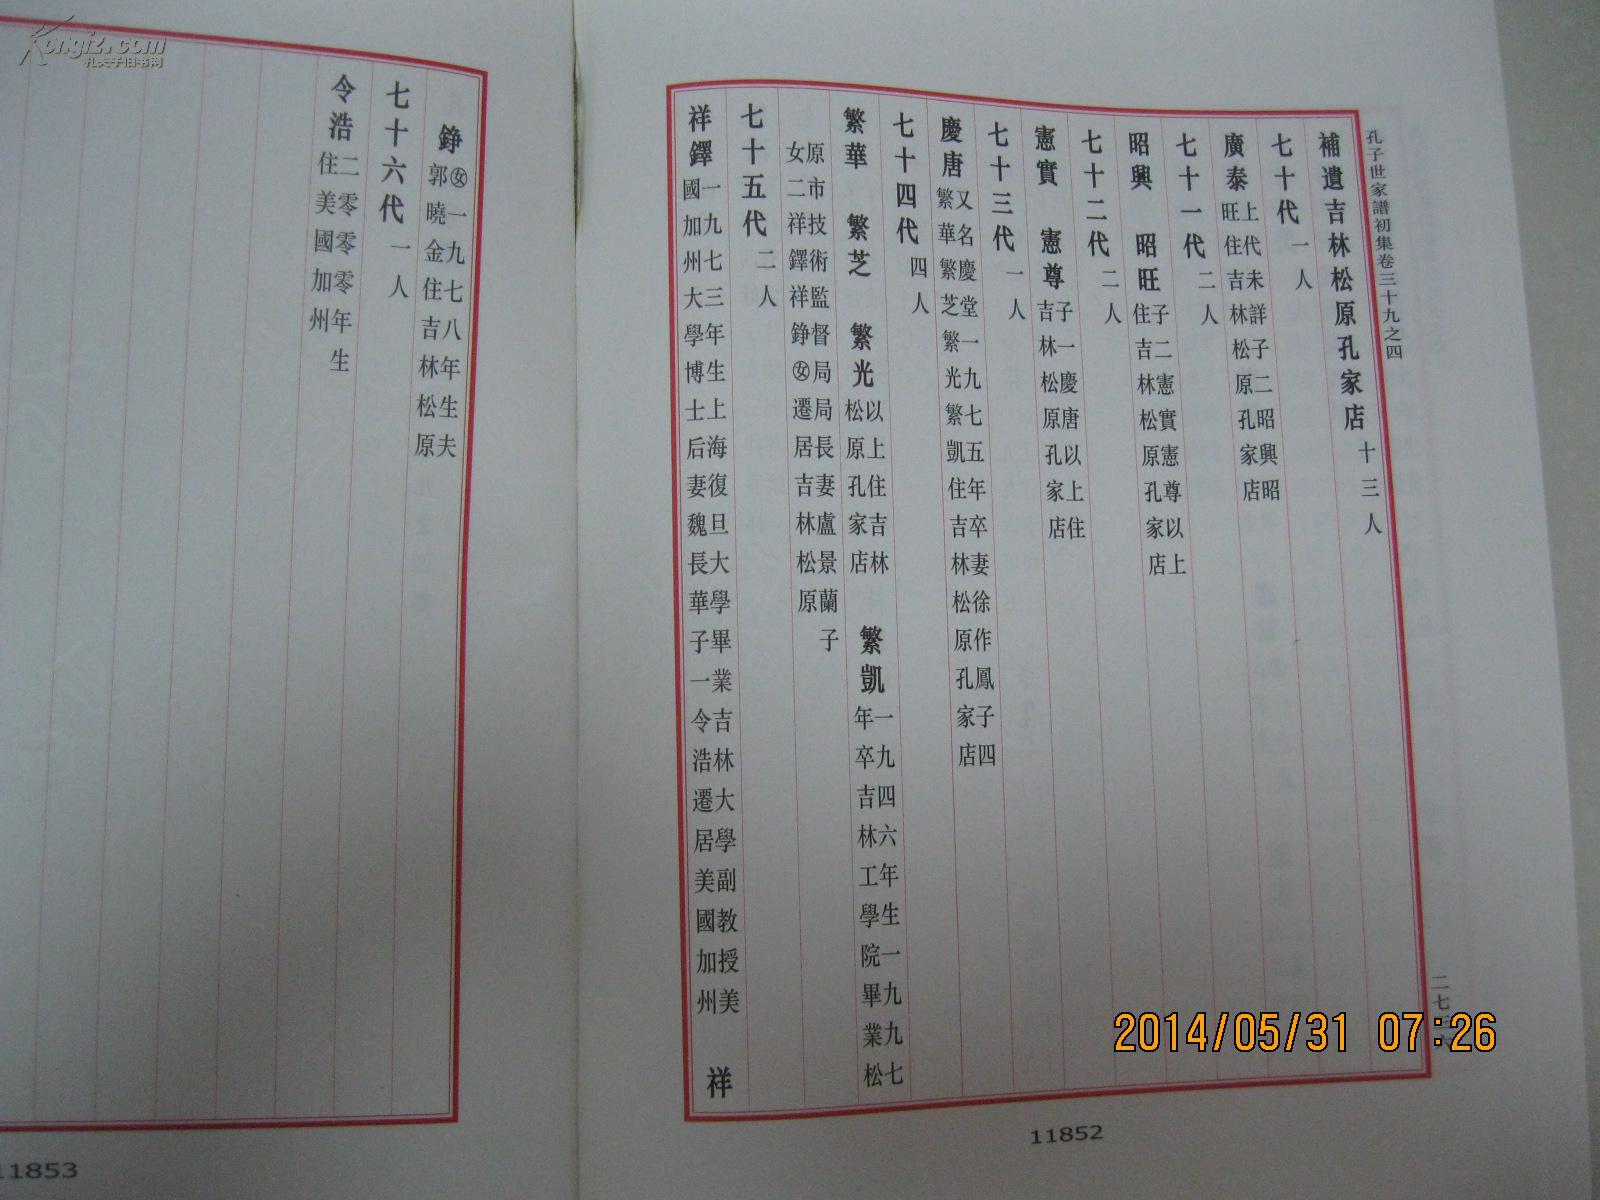 孔子世家譜初集卷三十九之四
補遺吉林松原孔家店 十三人
七十代 一人
廣泰 上代未詳子二昭興昭旺住吉林松原孔家店
七十一代 二人
昭興 昭旺 子二憲實憲尊以上住吉林松原孔家店
七十二代 二人
憲實 憲尊 子一慶唐以上住吉林松原孔家店
七十三代 一人
慶唐 又名慶堂一九七五年卒妻徐作鳳子四繁華繁芝繁光繁凱住吉林松原孔家店
七十四代 四人
繁華 繁芝 繁光 以上住吉林松原孔家店 繁凱 一九四六年生一九九七年卒吉林工學院畢業松
原市技術監督局局長妻盧景蘭子女二祥鐸祥錚㊛遷居吉林松原
七十五代 二人
祥鐸 一九七三年生上海復旦大學畢業吉林大學副教授美國加州大學博士后妻魏長華子一令浩遷居美國加州 祥
錚 ㊛一九七八年生夫郭曉金住吉林松原
七十六代 一人
令浩 二零零零年生住美國加州
11852
11853
2014/05/31 07:26
Kongfz.com
孔夫子旧书网